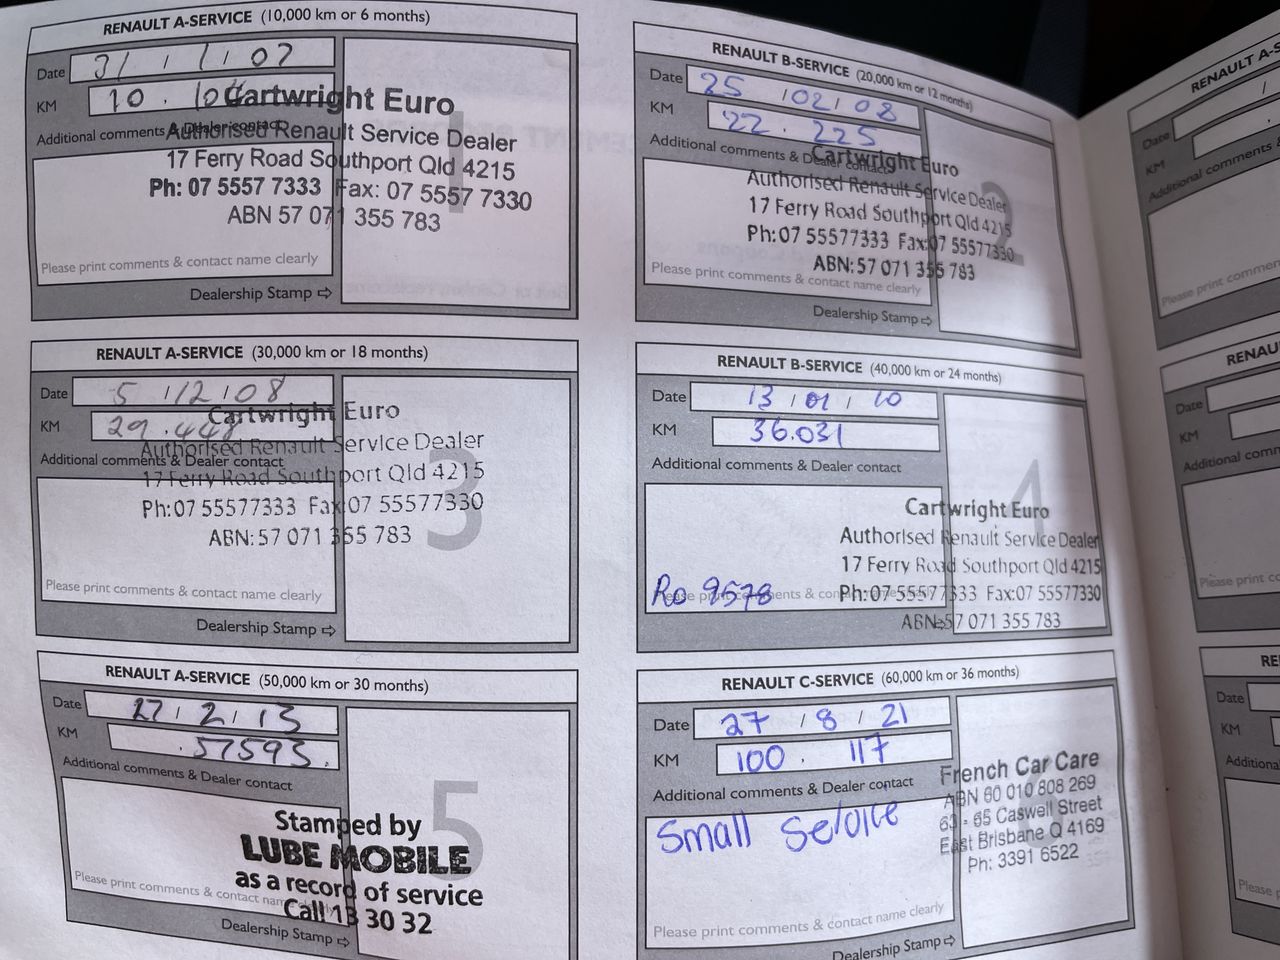 RENAULT A-SERVICE (10,000 km or 6 months)
Date 31 / 1 / 07
KM 10. 104
Additional comments & Dealer contact
Cartwright Euro
Authorised Renault Service Dealer
17 Ferry Road Southport Qld 4215
Ph: 07 5557 7333 Fax: 07 5557 7330
ABN 57 071 355 783
1
Please print comments & contact name clearly
Dealership Stamp ⇨
RENAULT B-SERVICE (20,000 km or 12 months)
Date 25 / 02 / 08
KM 22. 225
Additional comments & Dealer contact
Cartwright Euro
Authorised Renault Service Dealer
17 Ferry Road Southport Qld 4215
Ph:07 55577333 Fax:07 55577330
ABN:57 071 355 783
2
Please print comments & contact name clearly
Dealership Stamp ⇨
RENAULT A-SERVICE (30,000 km or 18 months)
Date 5 / 12 / 08
KM 29.448
Additional comments & Dealer contact
Cartwright Euro
Authorised Renault Service Dealer
17 Ferry Road Southport Qld 4215
Ph:07 55577333 Fax:07 55577330
ABN:57 071 355 783
3
Please print comments & contact name clearly
Dealership Stamp ⇨
RENAULT B-SERVICE (40,000 km or 24 months)
Date 13 / 01 / 10
KM 36.031
Additional comments & Dealer contact
4
Cartwright Euro
Authorised Renault Service Dealer
17 Ferry Road Southport Qld 4215
Ph:07 55577333 Fax:07 55577330
ABN:57 071 355 783
Ro 9578
Please print comments & contact name clearly
Dealership Stamp ⇨
RENAULT A-SERVICE (50,000 km or 30 months)
Date 27 / 2 / 13
KM .57593.
Additional comments & Dealer contact
5
Stamped by
LUBE MOBILE
as a record of service
Call 13 30 32
Please print comments & contact name clearly
Dealership Stamp ⇨
RENAULT C-SERVICE (60,000 km or 36 months)
Date 27 / 8 / 21
KM 100. 117
Additional comments & Dealer contact
Small Service
French Car Care
ABN 60 010 808 269
63 - 65 Caswell Street
East Brisbane Q 4169
Ph: 3391 6522
Please print comments & contact name clearly
Dealership Stamp ⇨
RENAULT A-S
Date
KM
Additional comments &
Please print commen
RENAU
Date
KM
Additional comm
Please print co
RE
Date
KM
Additiona
Please p